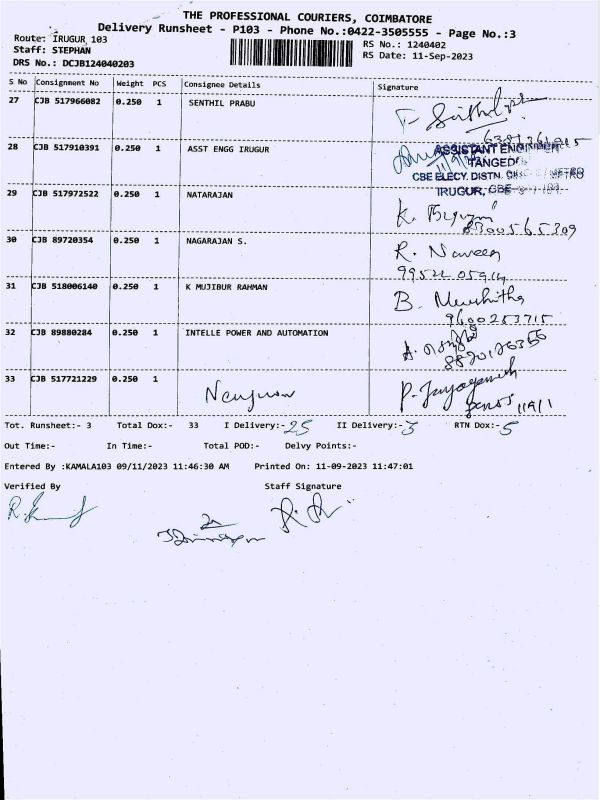 THE PROFESSIONAL COURIERS, COIMBATORE
Delivery Runsheet - P103 - Phone No.:0422-3505555 - Page No.:3
Route: IRUGUR 103
RS No.: 1240402
Staff: STEPHAN
RS Date: 11-Sep-2023
DRS No.: DCJB124040203
S No Consignment No Weight PCS Consignee Details Signature
27 CJB 517966082 0.250 1 SENTHIL PRABU
28 CJB 517910391 0.250 1 ASST ENGG IRUGUR
ASSISTANT
CBE ELECY. DISTN.
IRUGUR,
29 CJB 517972522 0.250 1 NATARAJAN K.
30 CJB 89720354 0.250 1 NAGARAJAN S. R. Naveen
31 CJB 518006140 0.250 1 K MUJIBUR RAHMAN B.
9600253715
32 CJB 89880284 0.250 1 INTELLE POWER AND AUTOMATION
33 CJB 517721229 0.250 1
Tot. Runsheet:- 3 Total Dox:- 33 I Delivery:- 25 II Delivery:- 3 RTN Dox:- 5
Out Time:- In Time:- Total POD:- Delvy Points:-
Entered By :KAMALA103 09/11/2023 11:46:30 AM Printed On: 11-09-2023 11:47:01
Verified By Staff Signature